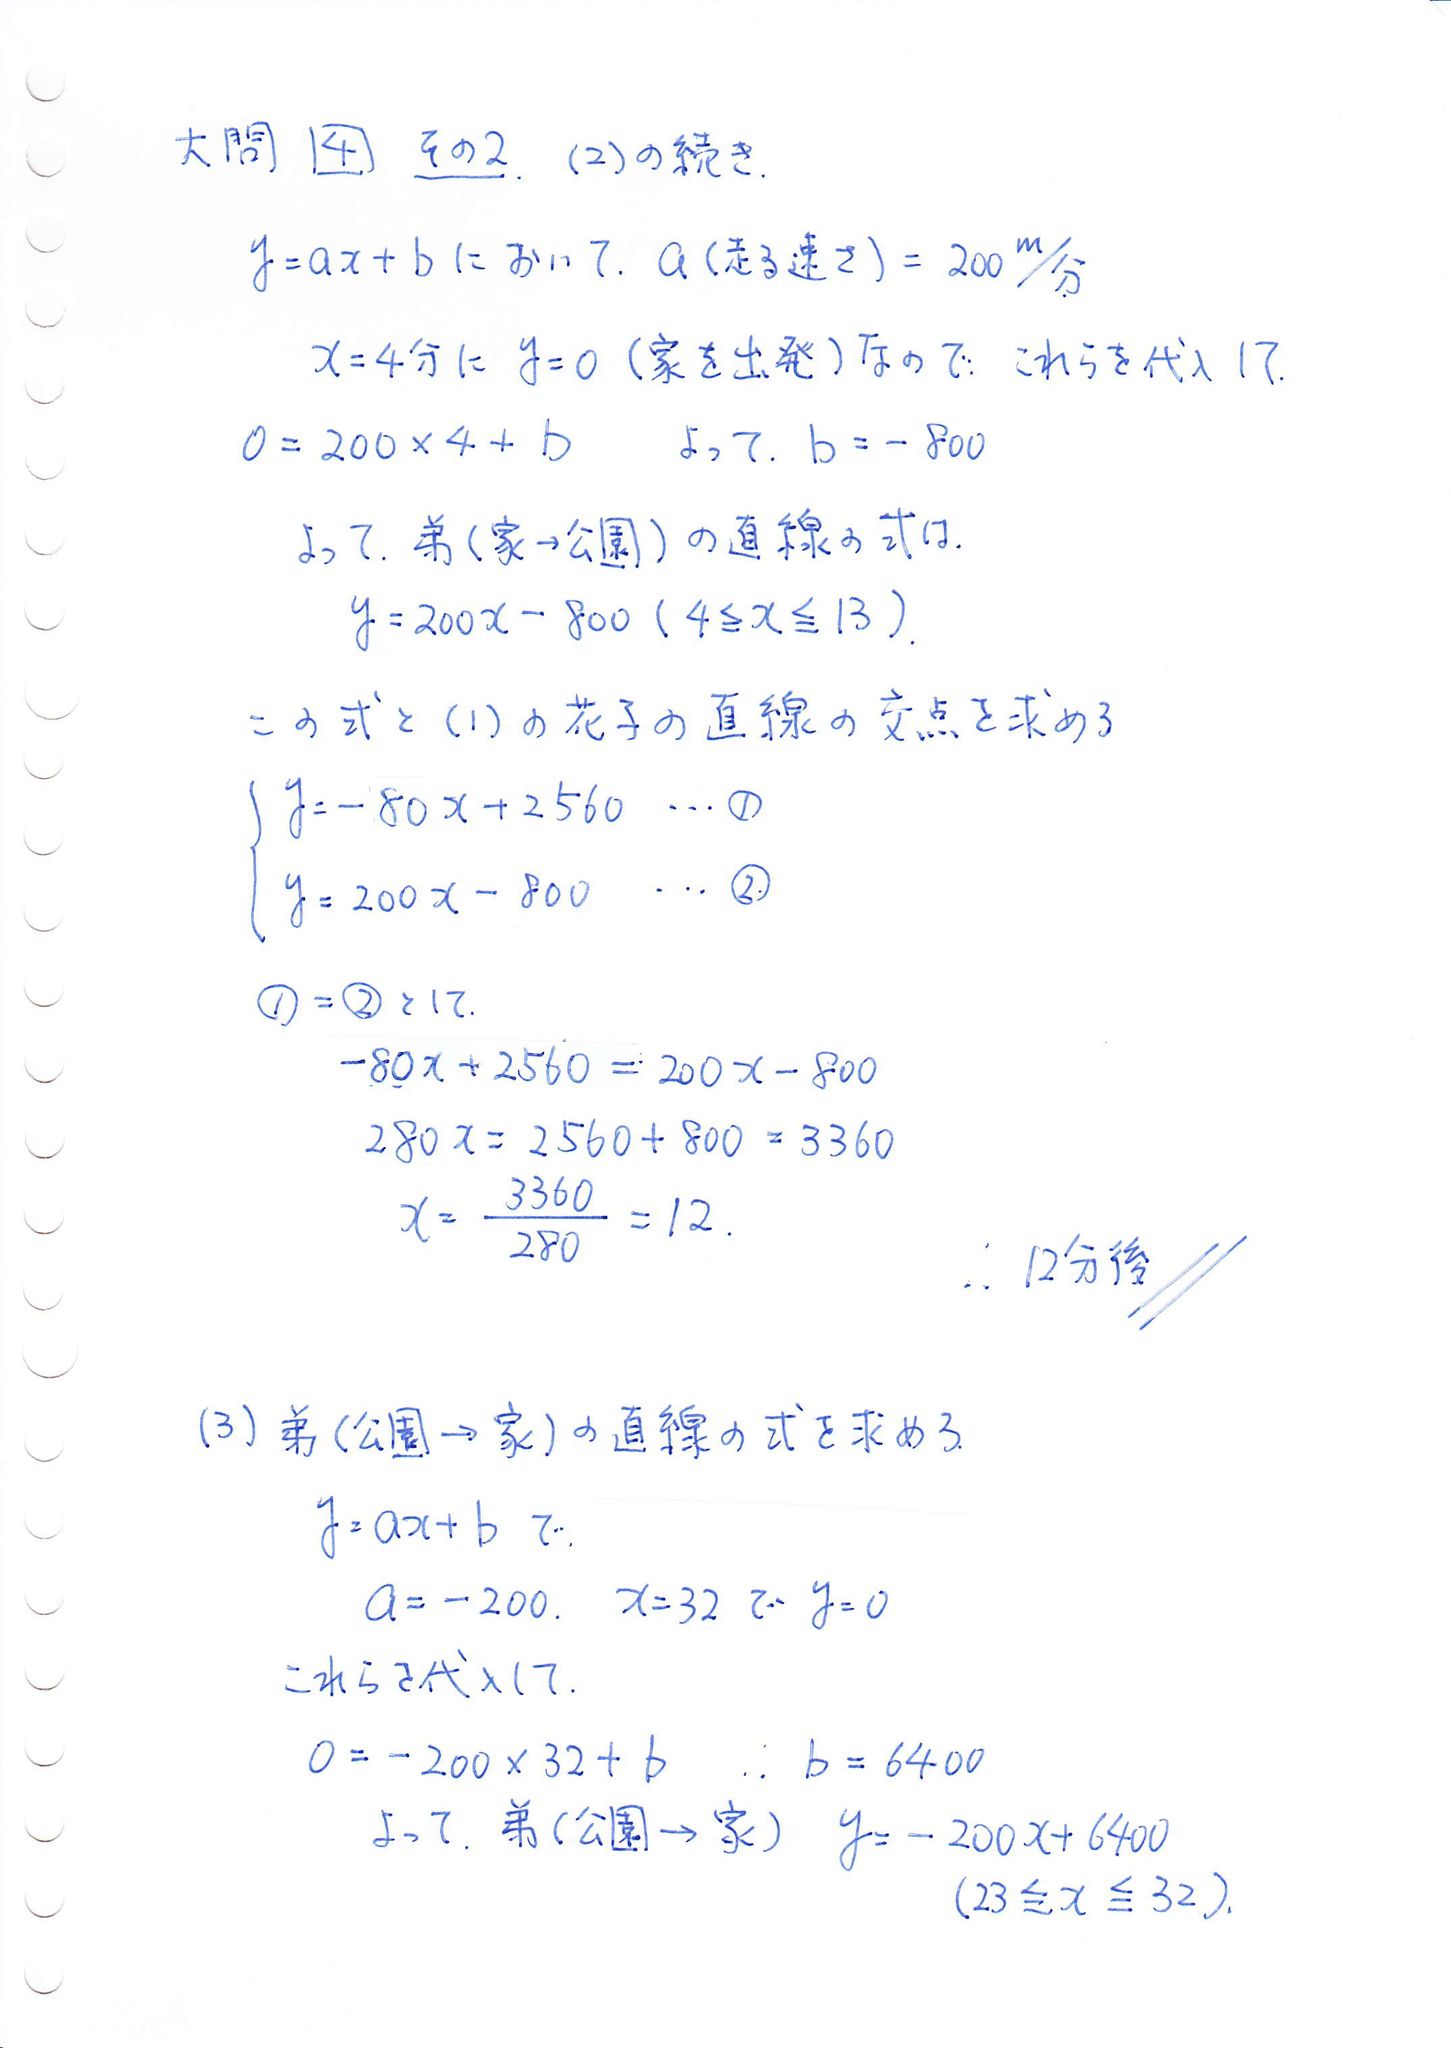 大問 4 その2. (2)の続き.
y=ax+bにおいて. a(走る速さ)=200m/分
x=4分にy=0(家を出発)なので これらを代入して.
0=200×4+b よって. b=-800
よって. 弟(家→公園)の直線の式は.
y=200x-800(4≦x≦13).
この式と(1)の花子の直線の交点を求める
y=-80x+2560 …①
y=200x-800 …②
①=②として.
-80x+2560=200x-800
280x=2560+800=3360
x=3360/280=12.
∴12分後
(3)弟(公園→家)の直線の式を求める.
y=ax+b で.
a=-200. x=32で y=0
これらを代入して.
0=-200×32+b ∴b=6400
よって. 弟(公園→家) y=-200x+6400
(23≦x≦32).